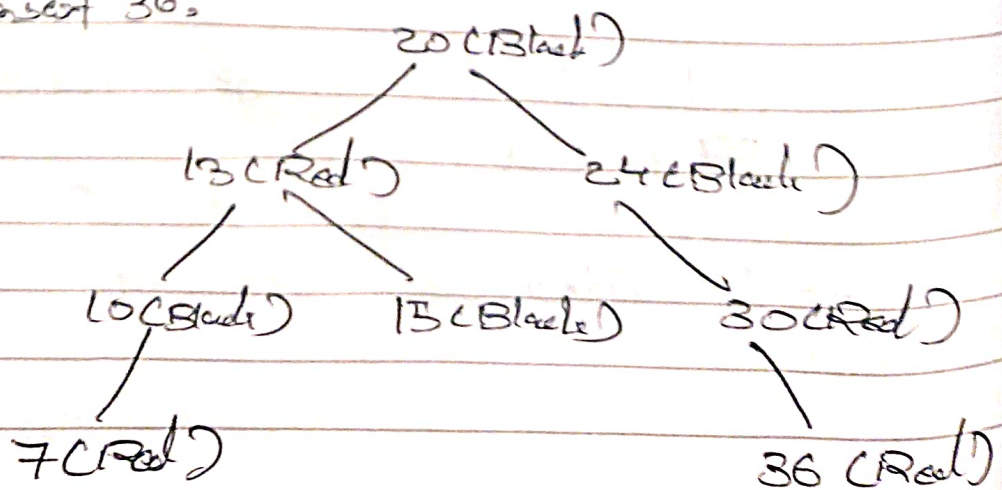 insert 36.
20 (Black)
13 (Red) 24 (Black)
10 (Black) 15 (Black) 30 (Red)
7 (Red) 36 (Red)